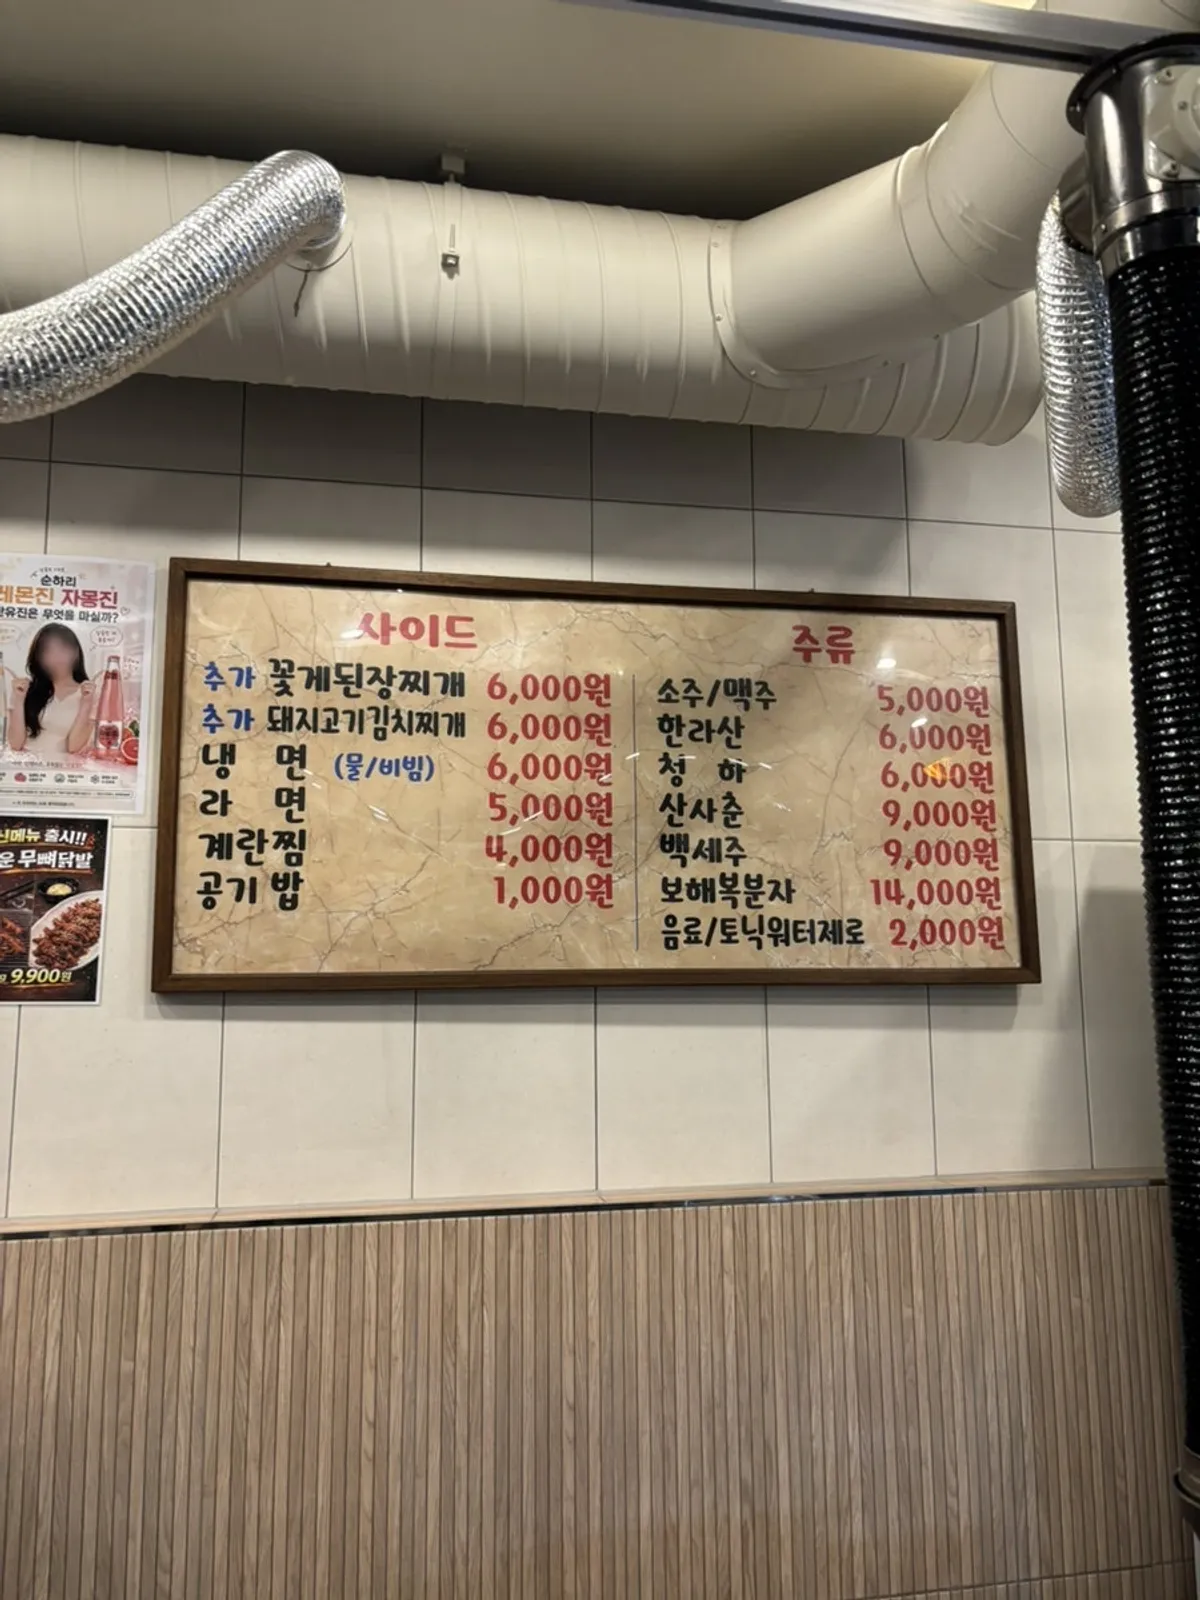 순하리
레몬진 자몽진
유진은 무엇을 마실까?
신메뉴 출시!!
운 무뼈닭발
9,900원
사이드
추가 꽃게된장찌개 6,000원
추가 돼지고기김치찌개 6,000원
냉 면 (물/비빔) 6,000원
라 면 5,000원
계란찜 4,000원
공기밥 1,000원
주류
소주/맥주 5,000원
한라산 6,000원
청 하 6,000원
산사춘 9,000원
백세주 9,000원
보해복분자 14,000원
음료/토닉워터제로 2,000원